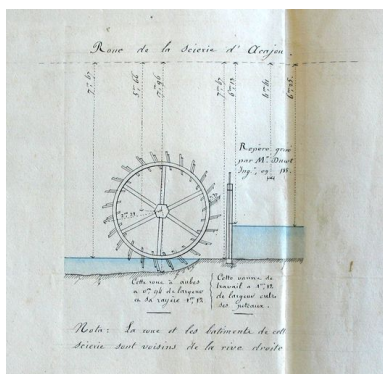 Roue de la scierie d'Acajou.
7m67
5m66
0m96
7m67
6m13
6m61
6m25
Repère gravé
par Mr
Ingr
Cette roue à aubes
a 0m96 de largeur
et sa rayère 1m12
Cette vanne de
travail a 1m12
de largeur entre
ses poteaux.
Nota: La roue et les batiments de cette
scierie sont voisins de la rive droite